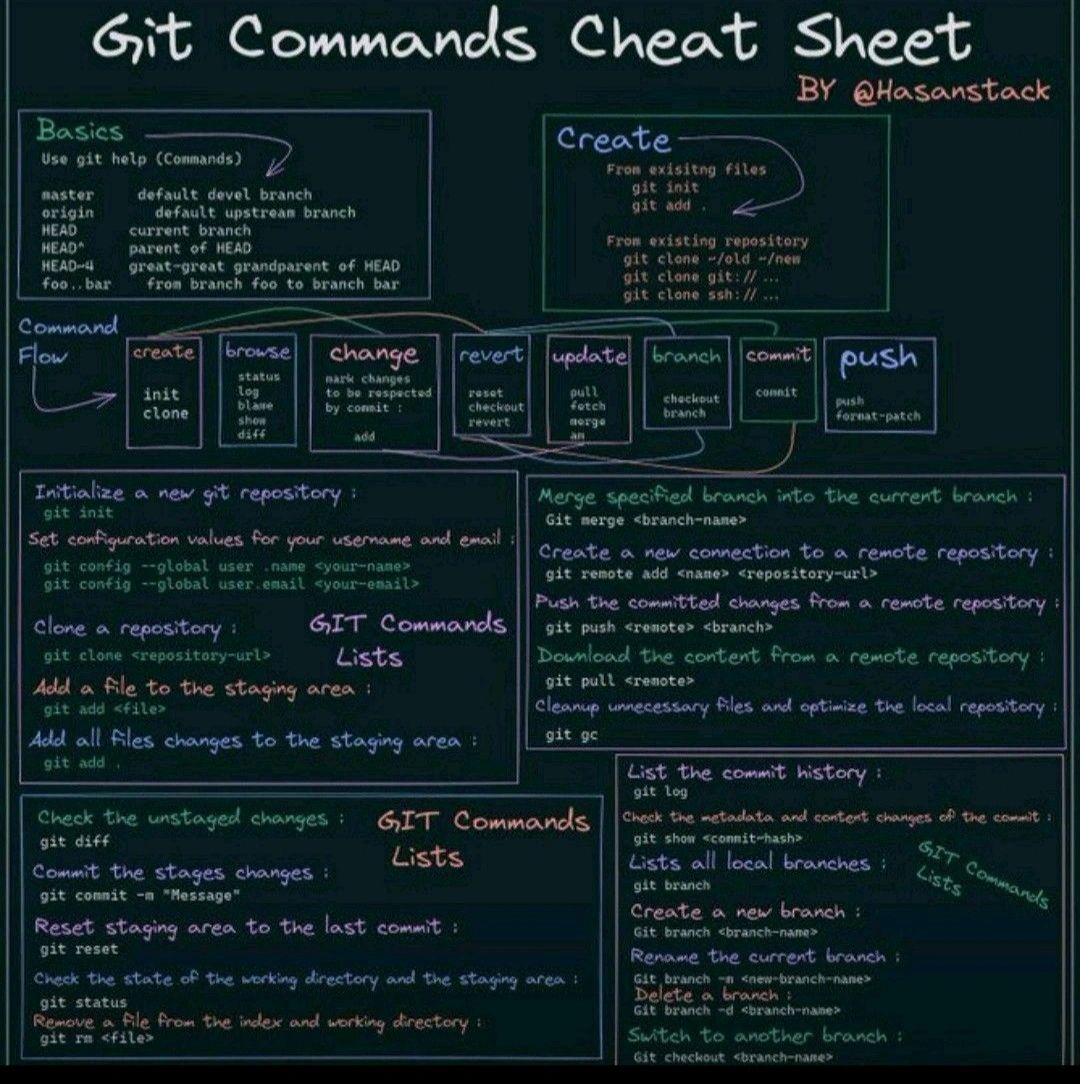 Git Commands Cheat Sheet
BY @Hasanstack
Basics
Use git help (Commands)
master default devel branch
origin default upstream branch
HEAD current branch
HEAD^ parent of HEAD
HEAD~4 great-great grandparent of HEAD
foo..bar from branch foo to branch bar
Create
From exisitng files
git init
git add .
From existing repository
git clone ~/old ~/new
git clone git:// ...
git clone ssh:// ...
Command
Flow
create
init
clone
browse
status
log
blame
show
diff
change
mark changes
to be respected
by commit :
add
revert
reset
checkout
revert
update
pull
fetch
merge
am
branch
checkout
branch
commit
commit
push
push
format-patch
Initialize a new git repository :
git init
Set configuration values for your username and email :
git config --global user .name <your-name>
git config --global user.email <your-email>
Clone a repository :
git clone <repository-url>
GIT Commands
Lists
Add a file to the staging area :
git add <file>
Add all files changes to the staging area :
git add .
Merge specified branch into the current branch :
Git merge <branch-name>
Create a new connection to a remote repository :
git remote add <name> <repository-url>
Push the committed changes from a remote repository :
git push <remote> <branch>
Download the content from a remote repository :
git pull <remote>
Cleanup unnecessary files and optimize the local repository :
git gc
Check the unstaged changes :
git diff
GIT Commands
Lists
Commit the stages changes :
git commit -m "Message"
Reset staging area to the last commit :
git reset
Check the state of the working directory and the staging area :
git status
Remove a file from the index and working directory :
git rm <file>
List the commit history :
git log
Check the metadata and content changes of the commit :
git show <commit-hash>
Lists all local branches :
git branch
GIT Commands
Lists
Create a new branch :
Git branch <branch-name>
Rename the current branch :
Git branch -m <new-branch-name>
Delete a branch :
Git branch -d <branch-name>
Switch to another branch :
Git checkout <branch-name>